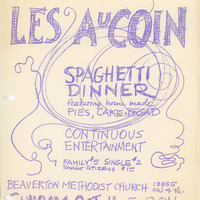 LES AUCOIN
SPAGHETTI
DINNER
featuring home made
PIES, CAKE, BREAD
CONTINUOUS
ENTERTAINMENT
FAMILY $5 SINGLE $2
SENIOR CITIZENS $1.50
BEAVERTON METHODIST CHURCH 12555
SW 4th.
SUNDAY OCT